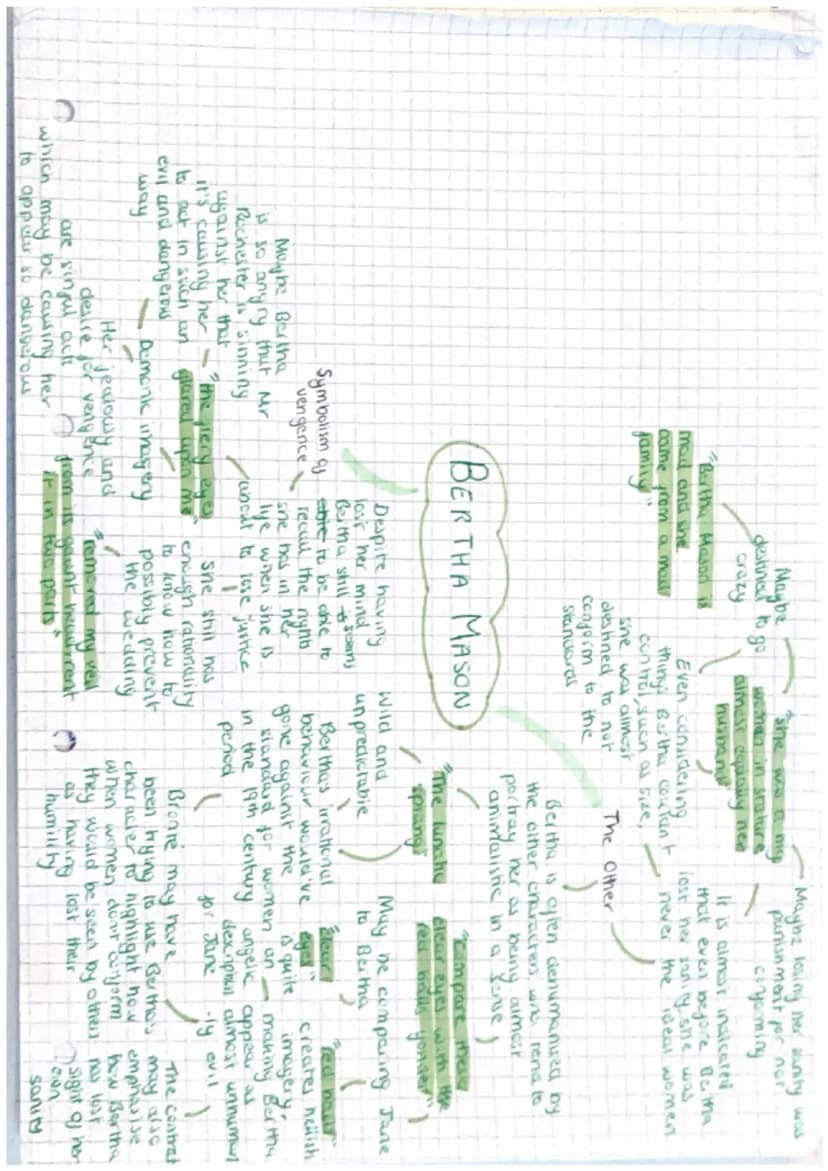 BERTHA MASON
Symbolism of
vengence
Despite having
lost her mind
Bertha still seems
able to be able to
recall the rights
she has in her
life when she is
about to lose justice
"the fiery eyes
glared upon me"
Maybe Bertha
is so angry that Mr
Rochester is sinning
against her that
it's causing her
to act in such an
evil and dangerous
way
Demonic imagery
Her jealousy and
desire for vengence
are sinful acts
which may be causing her
to appear so dangerous
She still has
enough rationality
to know how to
possibly prevent
the wedding
"removed my veil
from its gaunt head, rent
it in two parts"
The Other
Bertha is often dehumanised by
the other characters who tend to
portray her as being almost
animalistic in a sense
"The lunatic
sprang"
Wild and
unpredictable
Berthas irrational
behaviour would've
gone against the
standard for women
in the 19th century
period
Bronte may have
been trying to use Bertha's
character to highlight how
when women don't conform
they would be seen by others
as having lost their
humility
"compare these
clear eyes with the
red balls yonder"
May be comparing Jane
to Bertha
"clear
eyes"
is quite
an
angelic
description
for Jane
"red balls"
creates hellish
imagery,
making Bertha
appear as
almost unhuman
-ly evil
The contrast
may also
emphasise
how Bertha
has lost
sight of her
own
sanity
"she was a big
women in stature
almost equalling her
husband"
Maybe losing her sanity was
punishment for not
conforming
It is almost indicated
that even before Bertha
lost her sanity, she was
never the ideal women
Even considering
things Bertha couldn't
control, such as size,
she was almost
destined to not
conform to the
standards
"Bertha Mason is
mad and she
came from a mad
family"
Maybe
destined to go
crazy